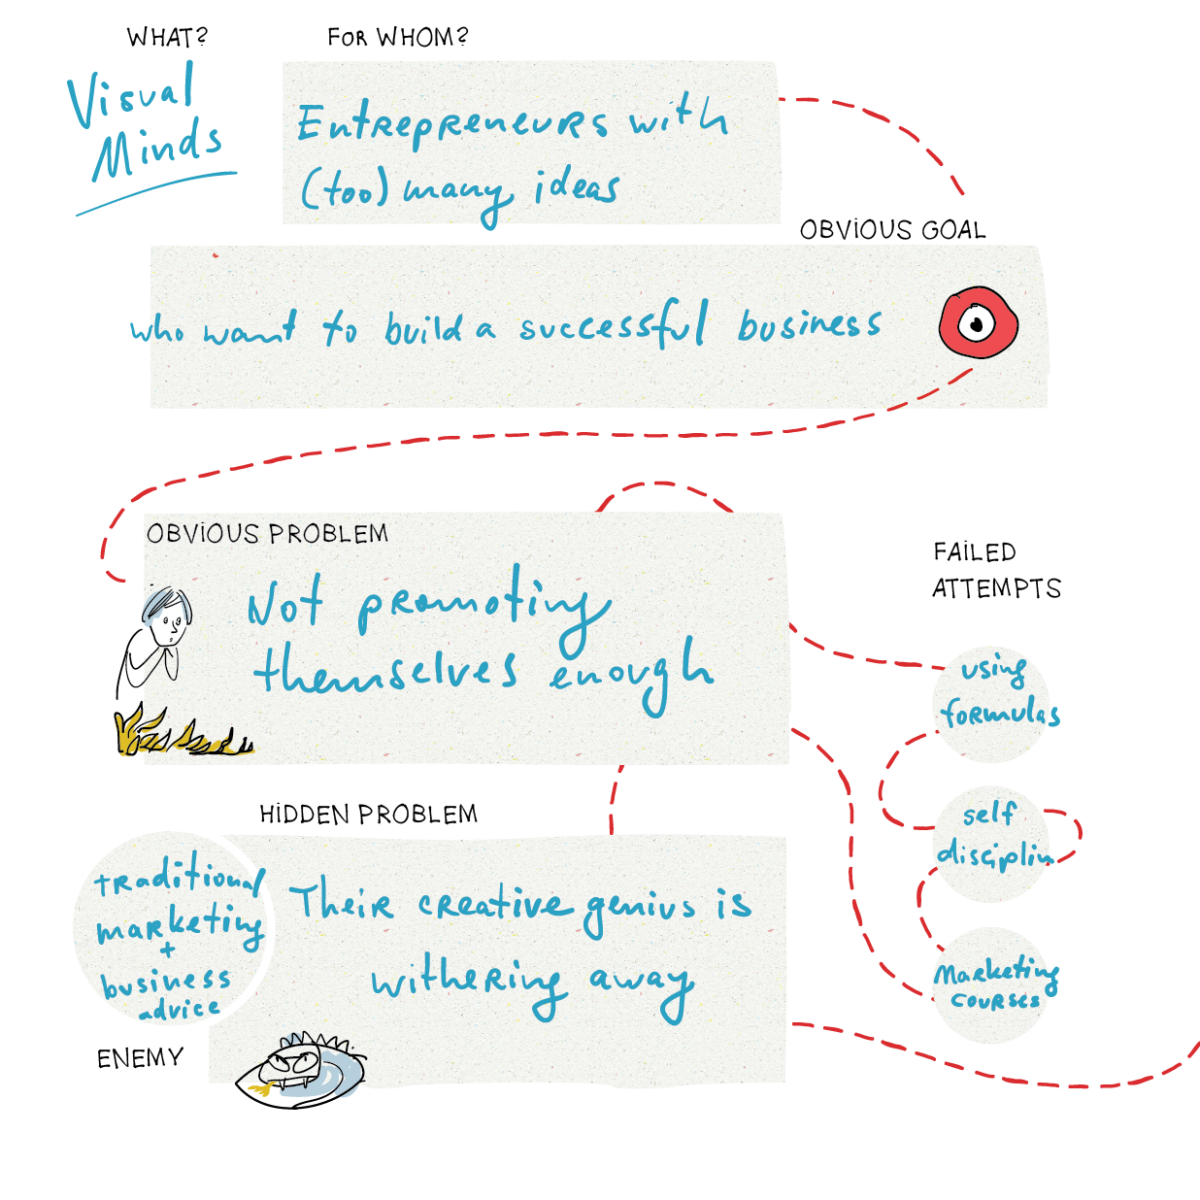 WHAT?
Visual
Minds
FOR WHOM?
Entrepreneurs with
(too) many ideas
OBVIOUS GOAL
who want to build a successful business
OBVIOUS PROBLEM
Not promoting
themselves enough
FAILED
ATTEMPTS
using
formulas
self
disciplin
Marketing
courses
HIDDEN PROBLEM
Their creative genius is
withering away
traditional
marketing
+
business
advice
ENEMY